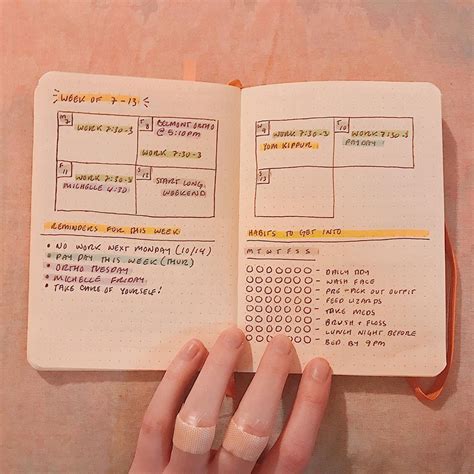 WEEK OF 7-13
M 7
WORK 7:30-3
T 8
BELMONT ORTHO
@ 5:10PM
WORK 7:30-3
F 11
WORK 7:30-3
MICHELLE 4:30
S 12
START LONG
WEEKEND
REMINDERS FOR THIS WEEK
• NO WORK NEXT MONDAY (10/14)
• PAY DAY THIS WEEK (THUR)
• ORTHO TUESDAY
• MICHELLE FRIDAY
• TAKE CARE OF YOURSELF!
W 9
WORK 7:30-3
YOM KIPPUR
T 10
WORK 7:30-3
PAYDAY
S 13
HABITS TO GET INTO
M T W T F S S
- DAILY
- WASH FACE
- PRE-PICK OUT OUTFIT
- FEED LIZARDS
- TAKE MEDS
- BRUSH + FLOSS
- LUNCH NIGHT BEFORE
- BED BY 9PM